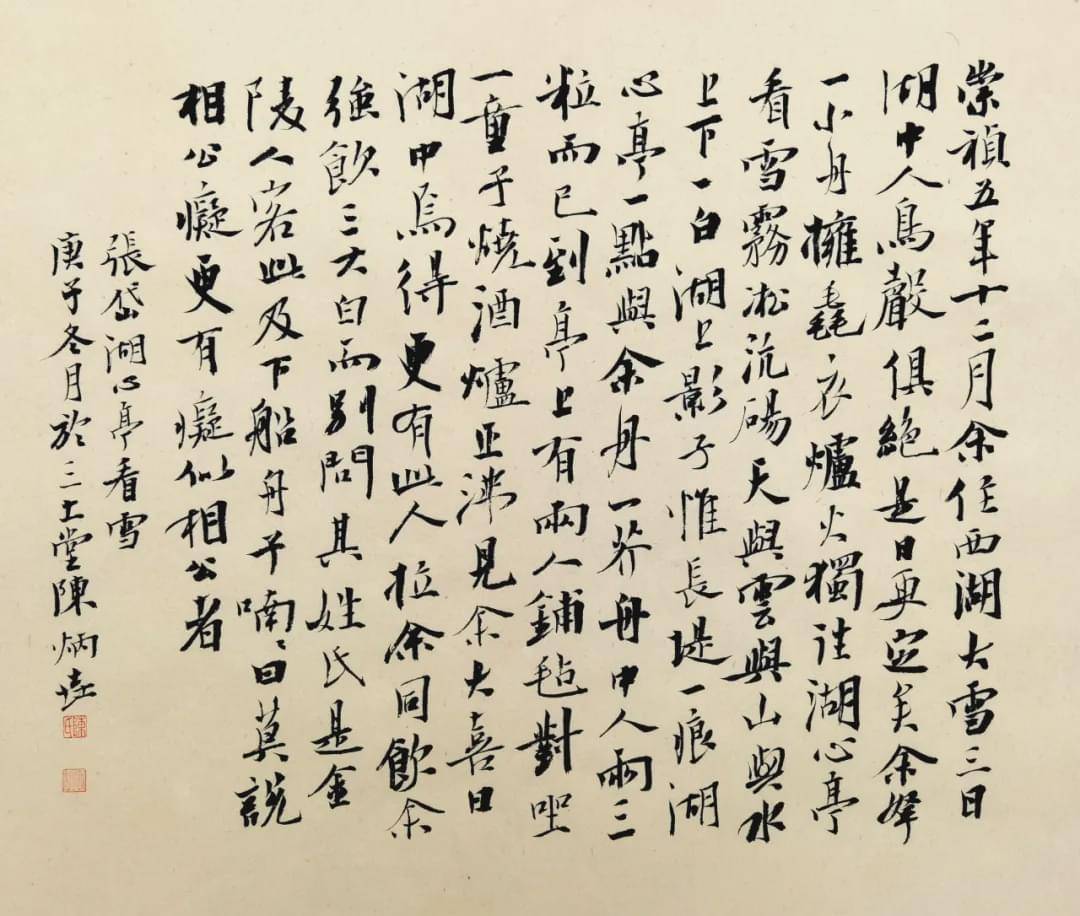 崇禎五年十二月余住西湖大雪三日
湖中人鳥聲俱絕是日更定矣余拏
一小舟擁毳衣爐火獨往湖心亭
看雪霧凇沆碭天與雲與山與水
上下一白湖上影子惟長堤一痕湖
心亭一點與余舟一芥舟中人兩三
粒而已到亭上有兩人鋪毡對坐
一童子燒酒爐正沸見余大喜曰
湖中焉得更有此人拉余同飲余
強飲三大白而別問其姓氏是金
陵人客此及下船舟子喃〻曰莫說
相公癡更有癡似相公者
張岱湖心亭看雪
庚子冬月於三土堂陳炳